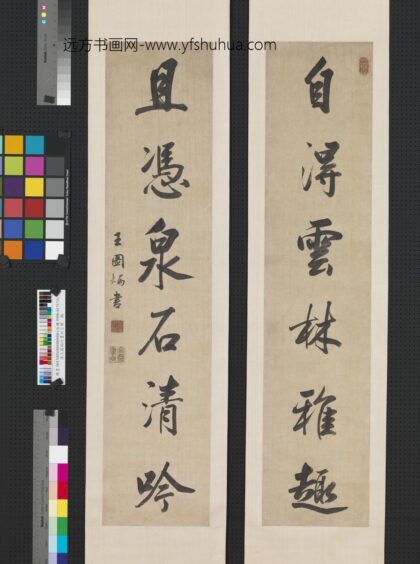 远方书画网-www.yfshuhua.com
自得雲林雅趣
且憑泉石清吟
王國梅書